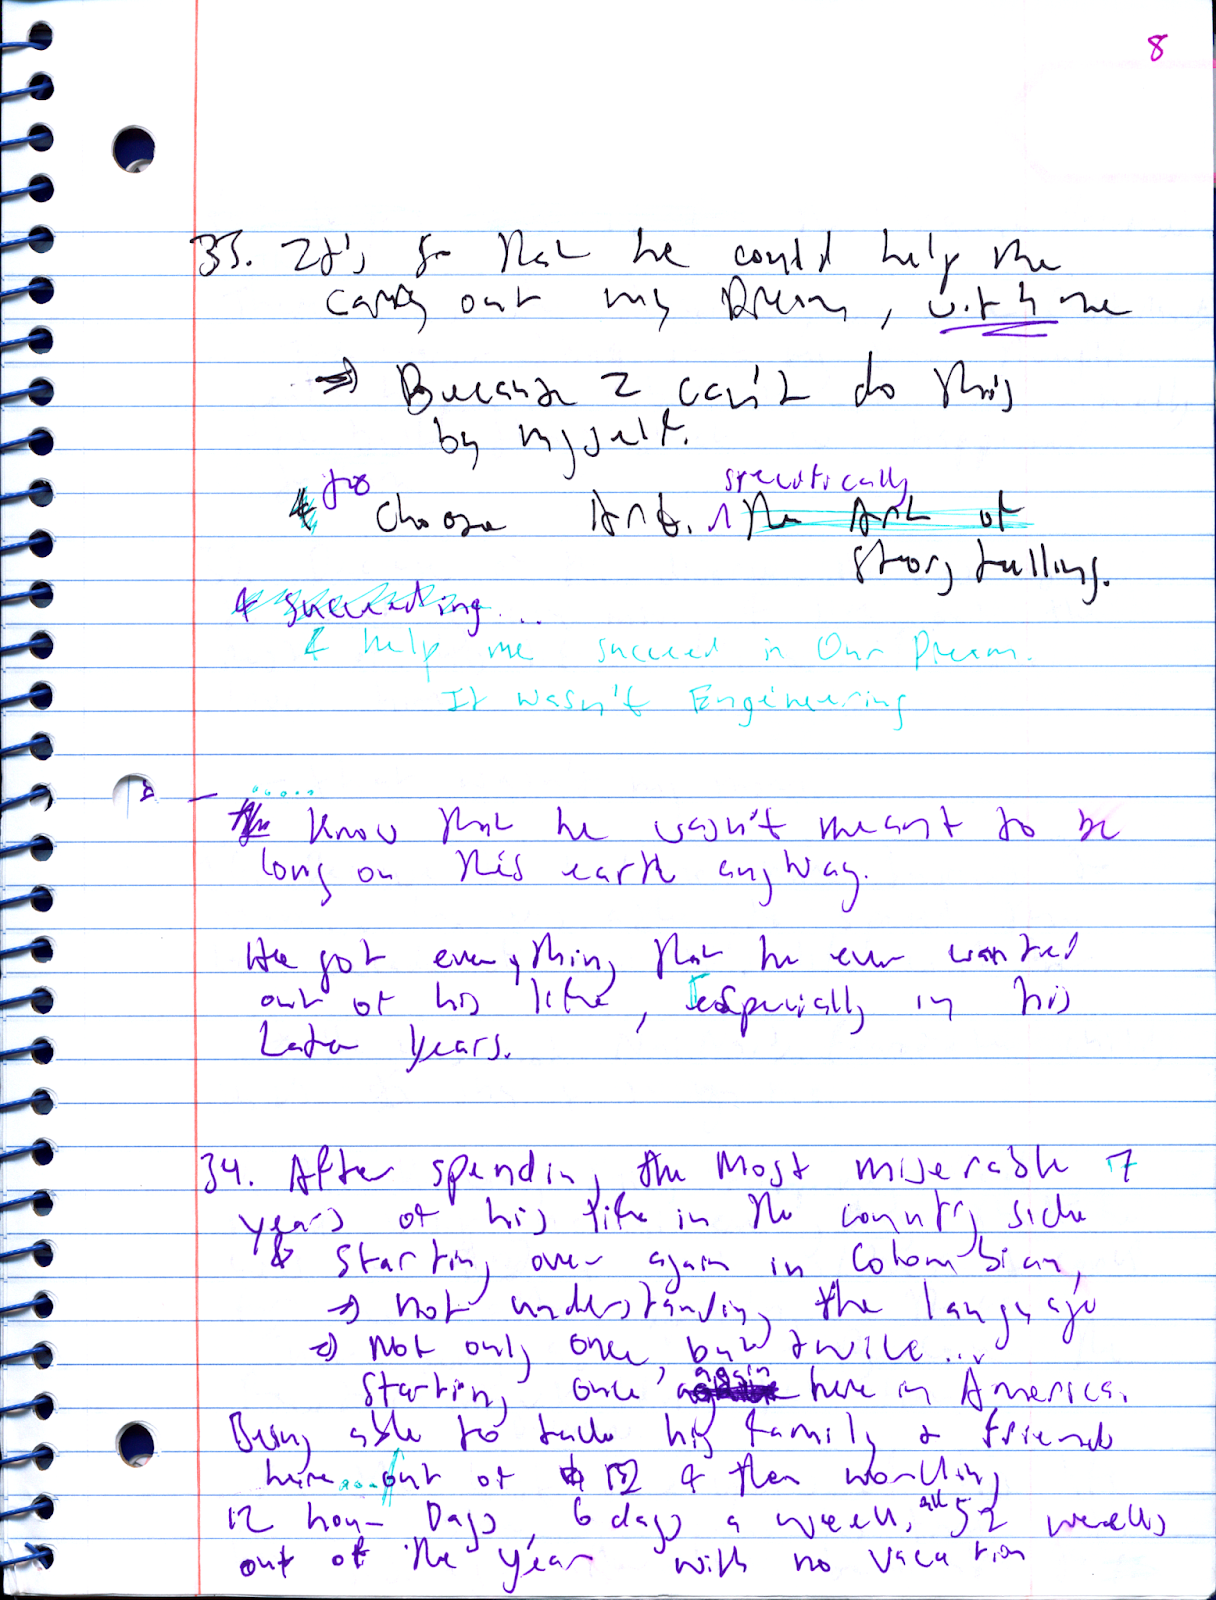 8
33. It's so that he could help me
carry out my Dream, with me
→ Because I can't do this
by myself.
& to choose Art. specifically the Art of
story telling.
& succeeding...
& help me succeed in Our Dream.
It wasn't Engineering
.....
I know that he wasn't meant to be
long on this earth anyway.
He got everything that he ever wanted
out of his life, especially in his
Later years.
34. After spending the most miserable 7
years of his life in the country side
& starting over again in Colombian,
→ not understanding the language
→ Not only once, but twice...
starting once again here in America.
Being able to take his family & friends
here....out of & then working
12 hour Days, 6 days a week, all 52 weeks
out of the year with no vacation